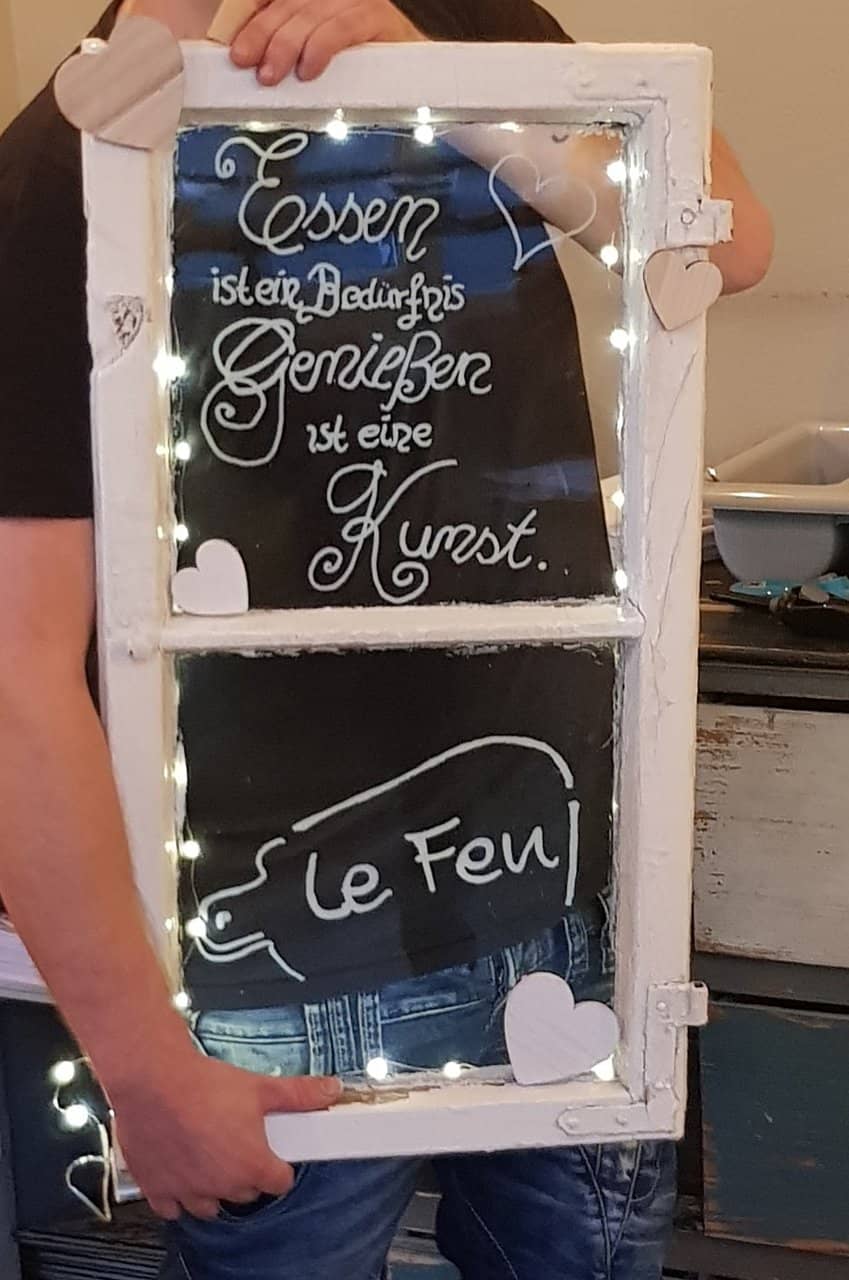 Essen
ist ein Bedürfnis
Genießen
ist eine
Kunst.
le Feu